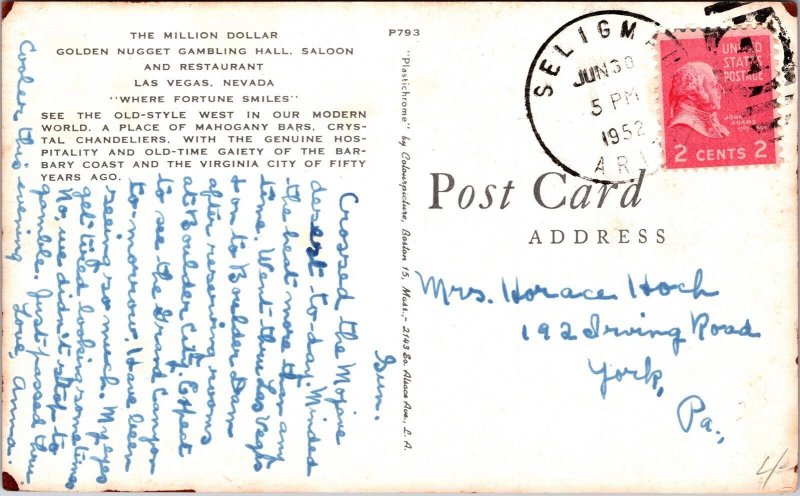 THE MILLION DOLLAR
GOLDEN NUGGET GAMBLING HALL, SALOON
AND RESTAURANT
LAS VEGAS, NEVADA
"WHERE FORTUNE SMILES"
SEE THE OLD-STYLE WEST IN OUR MODERN
WORLD. A PLACE OF MAHOGANY BARS, CRYS-
TAL CHANDELIERS, WITH THE GENUINE HOS-
PITALITY AND OLD-TIME GAIETY OF THE BAR-
BARY COAST AND THE VIRGINIA CITY OF FIFTY
YEARS AGO.
P793
Sun.
Crossed the Mojave
desert to-day. Minded
the heat more than any
time. Went thru Las Vegas
& on to Boulder Dam
after reserving rooms
at Boulder City. Expect
to see the Grand Canyon
to-morrow. Have been
seeing so much. My eyes
get tired looking sometimes
No, we didn't stop to
gamble. Just passed thru
Love, Anna.
Cooler this evening
"Plastichrome" by Colourpicture, Boston 15, Mass.,- 2143 So. Alsace Ave., L. A.
SELIGMAN
JUN 30
5 PM
1952
ARIZ
UNITED
STATES
POSTAGE
JOHN
ADAMS
2 CENTS 2
Post Card
ADDRESS
Mrs. Horace Hoch
192 Irving Road
York,
Pa.,